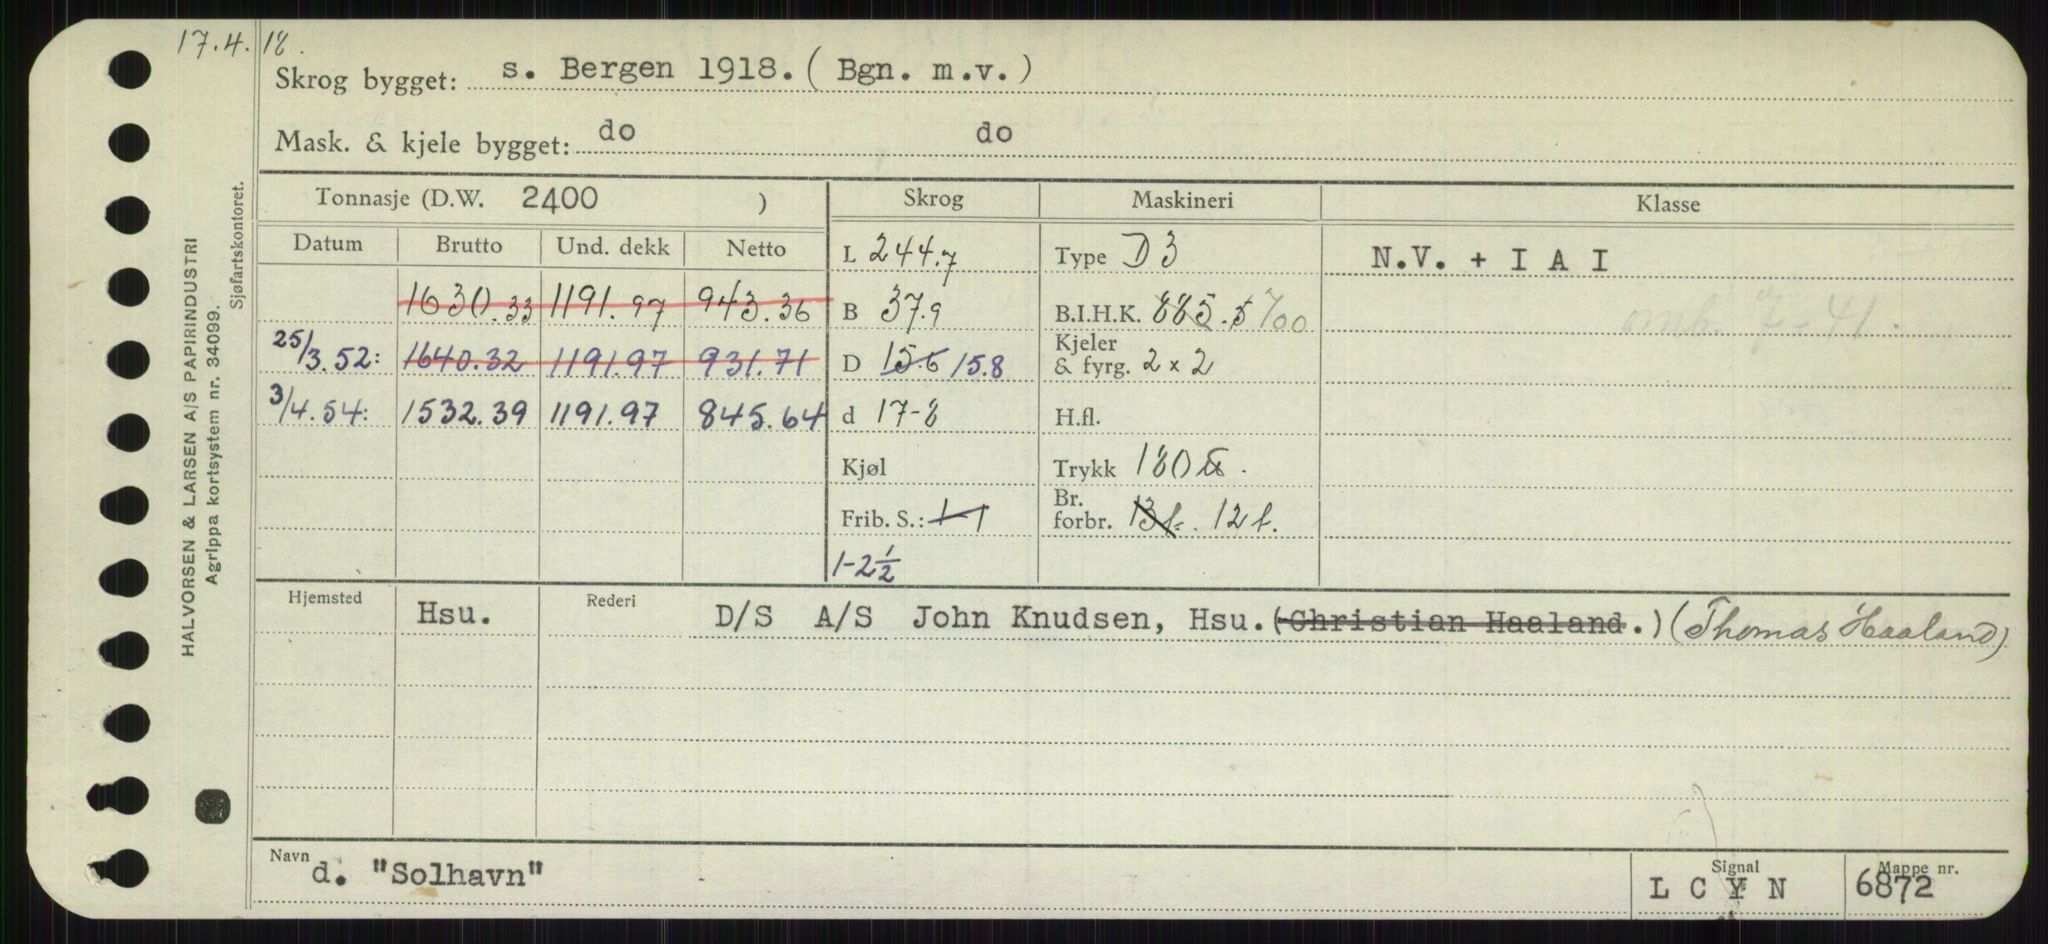 17.4.18.
Skrog bygget: s. Bergen 1918. (Bgn. m.v.)
Mask. & kjele bygget: do do
Tonnasje (D.W. 2400 ) Skrog Maskineri Klasse
Datum Brutto Und. dekk Netto L 244.7 Type D3 N.V. + I A I
1630.33 1191.97 943.36 B 37.9 B.I.H.K. 885.5 700
25/3.52: 1640.32 1191.97 931.71 D 15.6 15.8 Kjeler & fyrg. 2 x 2
3/4.54: 1532.39 1191.97 845.64 d 17-8 H.fl.
Kjøl Trykk 180 ℔.
Frib. S.: 1-1 Br. forbr. 13 t. 12 t.
1-2½
Hjemsted Hsu. Rederi D/S A/S John Knudsen, Hsu. (Christian Haaland.) (Thomas Haaland)
Navn d. "Solhavn" Signal L C Y N Mappe nr. 6872
HALVORSEN & LARSEN A/S PAPIRINDUSTRI
Agrippa kortsystem nr. 34099.
Sjøfartskontoret.